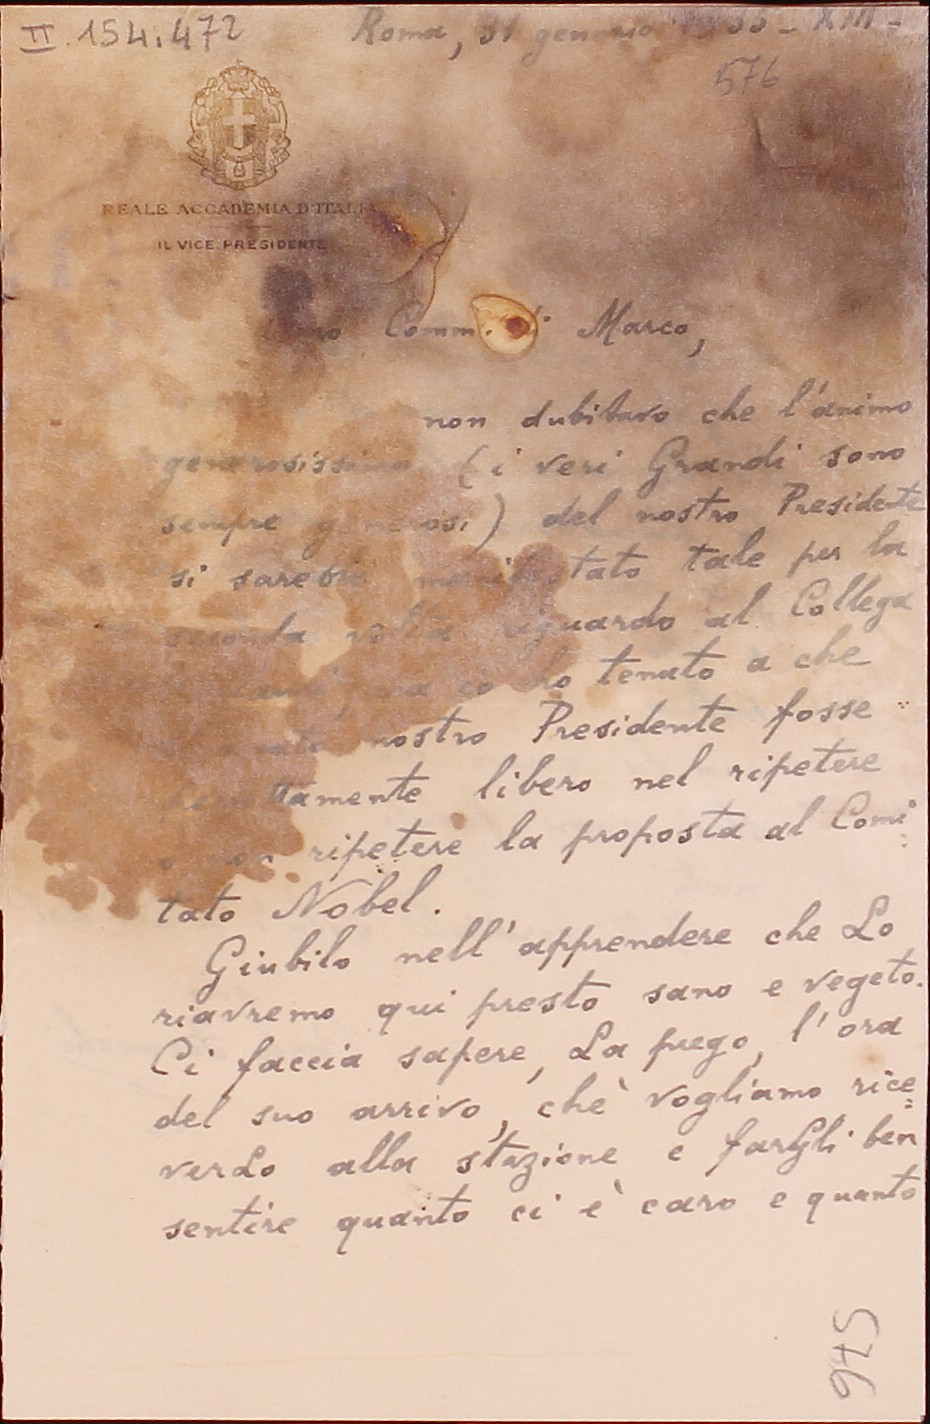 II 154.472
Roma, 31 gennaio 1935 - XIII -
576
REALE ACCADEMIA D'ITALIA
IL VICE PRESIDENTE
Comm. di Marco,
non dubitavo che l'animo
generosissimo (i veri Grandi sono
sempre generosi) del nostro Presidente
si sarebbe manifestato tale per la
seconda volta riguardo al Collega
ma ciò ho tenuto a che
nostro Presidente fosse
libero nel ripetere
o non ripetere la proposta al Comi
tato Nobel.
Giubilo nell'apprendere che Lo
riavremo qui presto sano e vegeto.
Ci faccia sapere, La prego, l'ora
del suo arrivo, chè vogliamo rice=
verLo alla stazione e farGli ben
sentire quanto ci è caro e quanto
576